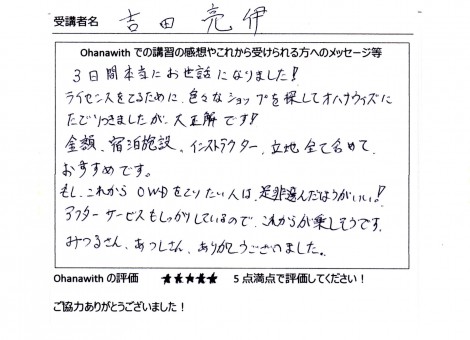 受講者名 吉田亮伊
Ohanawith での講習の感想やこれから受けられる方へのメッセージ等
3日間本当にお世話になりました!
ライセンスをとるために、色々なショップを探してオハナウィズに
たどりつきましたが、大正解です!!
金額、宿泊施設、インストラクター、立地全て含めて、
おすすめです。
もし、これから OWDをとりたい人は、是非選んだほうがいい!
アフターサービスもしっかりしているので、これからが楽しそうです。
みつるさん、あつしさん、ありがとうございました。
Ohanawith の評価 ★★★★★ 5点満点で評価してください!
ご協力ありがとうございました!